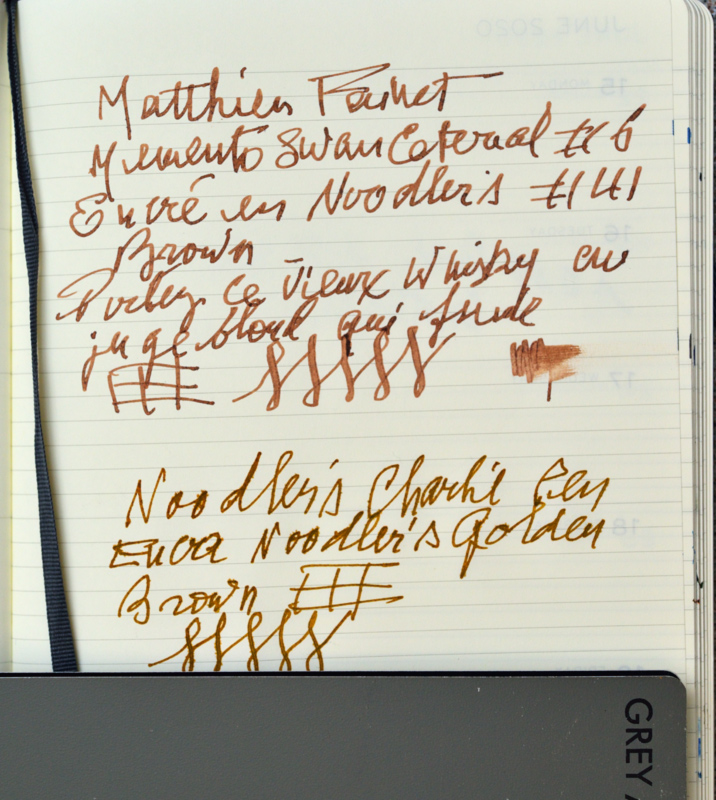 Matthieu Faivet
Memento Swan Eaternal #6
Encré en Noodler's #41
Brown
Portez ce vieux whisky au
juge blond qui fume
Noodler's Charlie Pen
Encre Noodler's Golden
Brown
GREY
JUNE 2020
15 MONDAY
16 TUESDAY
17
18